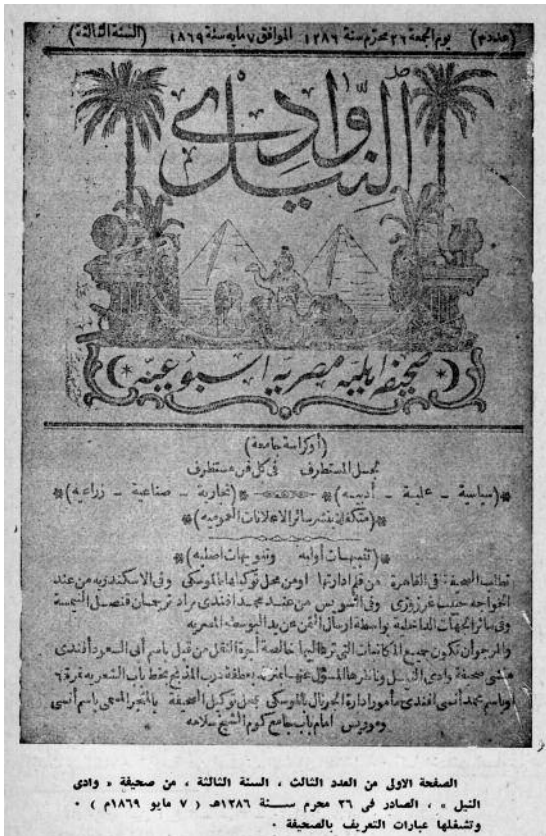 (عدد ٣) يوم الجمعة ٢٦ محرم سنة ١٢٨٦ الموافق ٧ مايه سنة ١٨٦٩ (السنة الثالثة)
وادى النيل
صحيفه اهليه مصريه اسبوعيه
(أوكراسة جامعة)
لجمل المستطرف فى كل فن مستطرف
(سياسية - علمية - أدبيه) (تجاريه - صناعية - زراعيه)
(متكفلة بنشر سائر الاعلانات العموميه)
(تنبيهات أوليه وتنويهات اصليه)
تطلب الصحيفة فى القاهرة من قلم ادارتها اومن محل توكيلها بالموسكى وفى الاسكندريه من عند
الخواجه حبيب غرزوزى وفى السويس من عند محمد افندى مراد ترجمان قنصل النيمسة
وفى سائر الجهات الداخلية بواسطة ارسال الثمن عن يد البوسطه المصريه
والمرجو أن تكون جميع المكاتبات التى ترد اليها خالصة أجرة النقل من قبل باسم أبى السعود أفندى
منشى صحيفة وادى النيل وناظرها المسؤل عنها بمنزله بعطفة درب المذبح بخط باب الشعريه نمرة ٦
او باسم محمد أنسى افندى مأمور ادارة الجرنال بالموسكى بمحل توكيل الصحيفة بالمتجر المسمى باسم أنسى
وموريس امام باب جامع كوم الشيخ سلامه
الصفحة الاولى من العدد الثالث ، السنة الثالثة ، من صحيفة « وادى
النيل » ، الصادر فى ٢٦ محرم سنة ١٢٨٦هـ ( ٧ مايو ١٨٦٩م ) ٠
وتشغلها عبارات التعريف بالصحيفة ٠